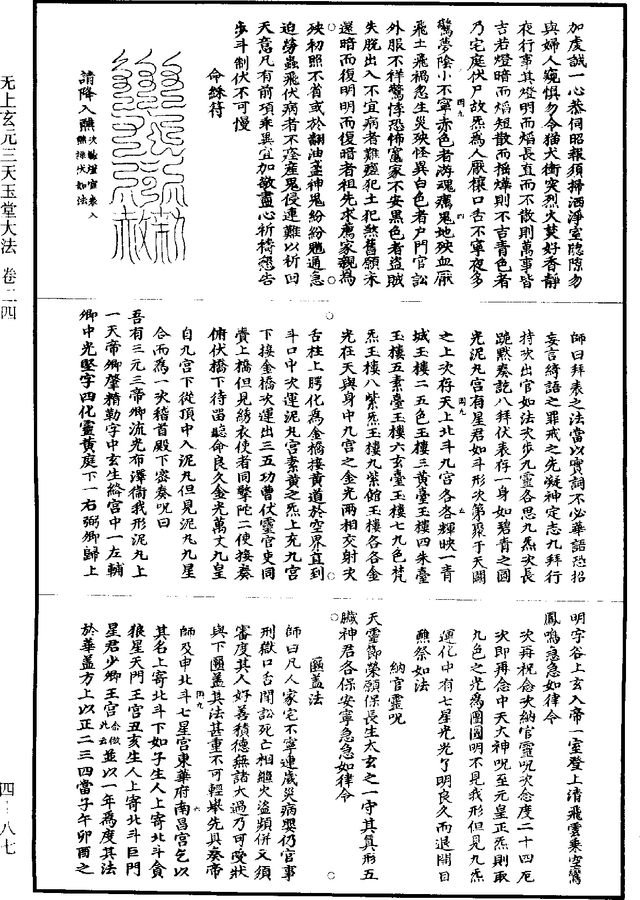 加虔誠一心恭伺昭報須掃洒淨室隐隙勿
與婦人窺惧勿令猫犬衝突烈火焚好香靜
夜行事其燈明而焰長直而不散則萬事皆
吉若燈暗而焰短散而搖爗則不吉青色者
乃宅庭伏尸故炁為人厭禳口舌不寧夜多
驚夢陰小不寧赤色者游魂瘟鬼地殃血厭
飛土飛禍忽生災殃怪異白色者户門官訟
外服不祥驚悸恐怖竃家不安黑色者盗賊
失脫出入不宜病者難瘥犯土犯煞舊願未
還暗而復明明而復暗者祖先求薦家親為
殃初照不省或於翻油盞神鬼紛紛魈通急
迫勞蟲飛伏病者不瘥產鬼侵連難以祈回
天意凡有前項乘異宜加敬盡心祈禱懇告
步斗制伏不可慢
命絲符
請降入醮
師曰拜表之法當以實詞不必華語恐招
妄言綺語之罪戒之先凝神定志九拜行
持次出官如法次步九靈各思九炁次長
跪默奏訖八拜伏表存一身如碧青之圓
光泥丸宮有星君如斗形次第聚于天關
之上次存天上北斗九宮各各輝映一青
城玉樓二五色玉樓三黃臺玉樓四朱臺
玉樓五素臺玉樓六玄臺玉樓七九色梵
炁玉樓八紫炁玉樓九紫館玉樓各各金
光在天與身中九宮之金光兩相交射次
舌柱上腭化為金橋接黃道於空界直到
斗口中次運泥丸宮素黃之炁上充九宮
下接金橋次運出三五功曹伏靈官吏同
賫上橋但見綉衣使者同擎陁二使接奏
俯伏橋下待畱聽命良久金光萬丈九皇
自九宮下從頂中入泥丸但見泥丸九星
合而為一次稽首殿下密奏呪曰
吾有三元三帝卿流光布澤衛我形泥丸上
一天帝卿肇精勒字中玄生絡宮中一左輔
卿中光堅字四化靈黃庭下一右弼卿歸上
明字谷上玄入帝一室登上清飛雲乘空鸞
鳳鳴急急如律令
次再祝念次納官靈呪次念度二十四厄
次即再念中天大神呪至元皇正炁則取
九色之光為團圓明不見我形但見九炁
運化中有七星光光了明良久而退開目
醮祭如法
納官靈呪
天靈節榮願保長生太玄之一守其真形五
臟神君各保安寧急急如律令
匾蓋法
師曰凡人家宅不寧連歲災病嬰仍官事
刑獄口舌閧訟死亡相繼火盗頻併又須
審度其人好善積德無諸大過乃可受狀
與下匾蓋其法甚重不可輕舉先具奏帝
師及申北斗七星宮東華府南昌宮乞以
其名上寄北斗下如子生人上寄北斗貪
狼星天門王宮丑亥生人上寄北斗巨門
星君少卿王宮並以一年為度其法
於華蓋方上以正二三四當子午卯酉之
无上玄元三天玉堂大法 卷二四
四-八七